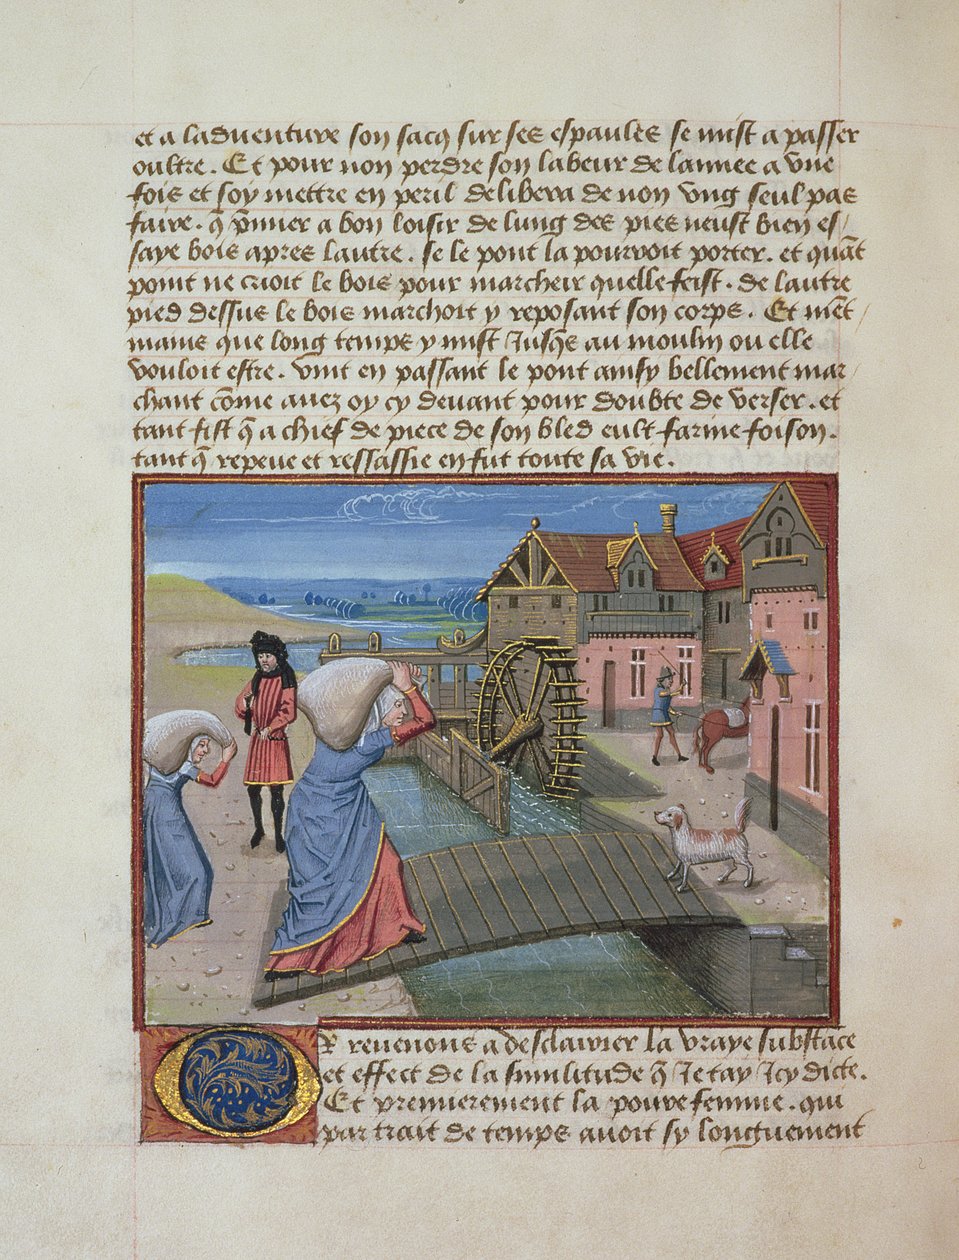 et a laduenture son sacq sur ses espaules se mist a passer
oultre. Et pour non perdre son labeur de lannee a vne
fois et soy mettre en peril delibera de non vng seul pas
faire. q̄ p̄mier a bon loisir de lung des pies neust bien es/
saye bois apres lautre. se le pont la pourroit porter. et quāt
point ne crioit le bois pour marcheir quelle feist. de lautre
pied dessus le bois marchoit y reposant son corps. Et mēt/
mains que long temps y mist Jusq̄s au moulin ou elle
vouloit estre. vint en passant le pont ainsy bellement mar/
chant cōme auez oy cy deuant pour doubte de verser. et
tant fist q̄ a chief de piece de son bled eult farine foison.
tant q̄ repeue et ressassie en fut toute sa vie.
OR reuenons a desclairier la vraye substāce
et effect de la similitude q̄ Jetay Jcy dicte.
Et premierement la poure femme. qui
par trait de temps auoit sy longuement